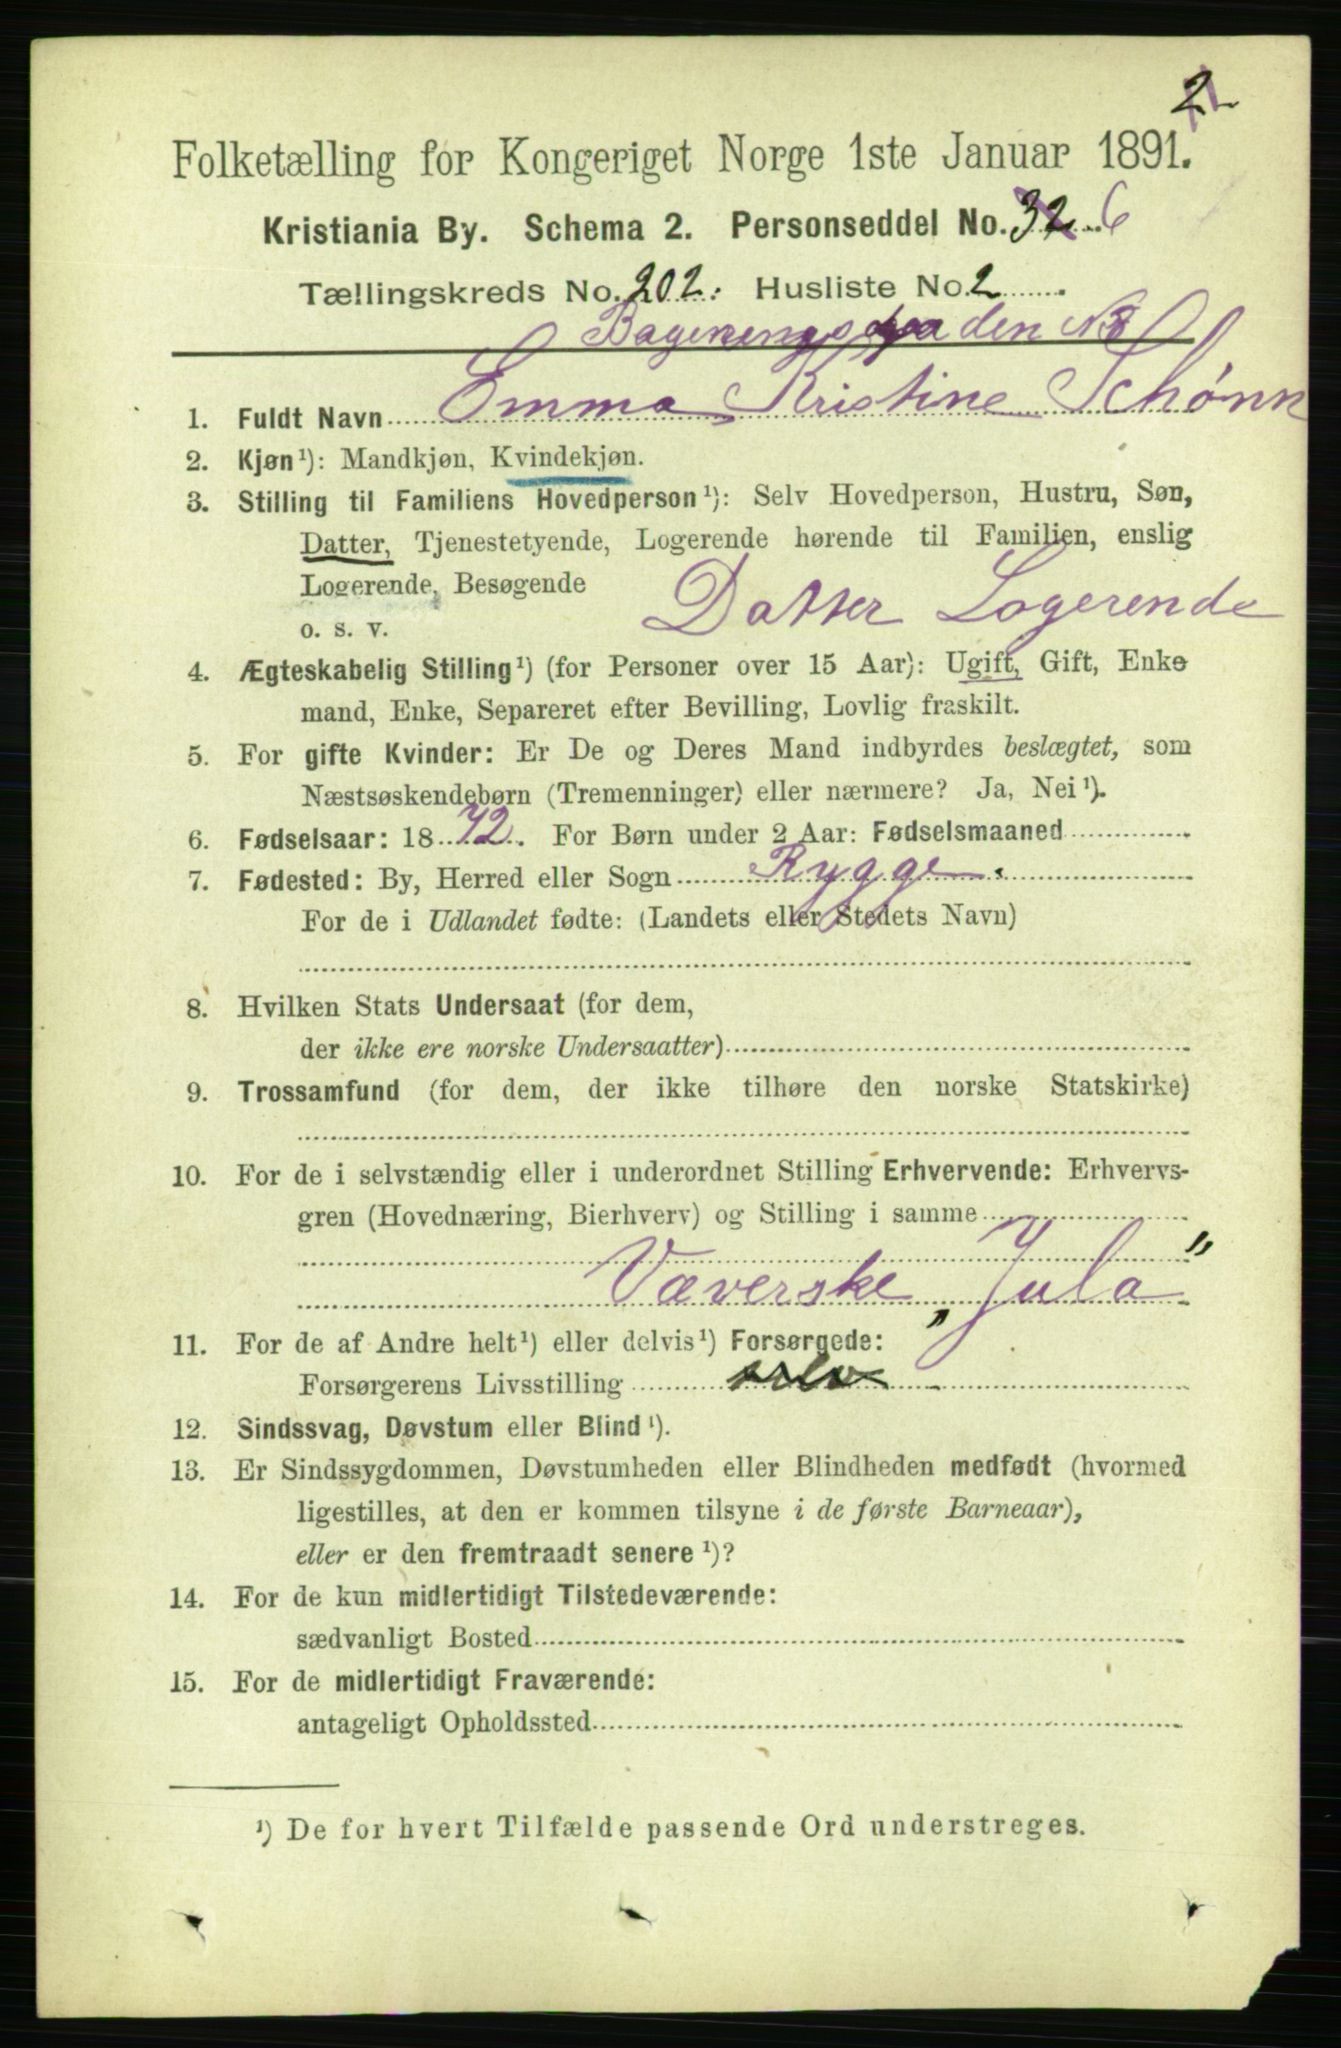 2
Folketælling for Kongeriget Norge 1ste Januar 1891.
Kristiania By. Schema 2. Personseddel No. 32 6
Tællingskreds No. 202. Husliste No. 2
den No 8
1. Fuldt Navn Emma Kristine Schønn
2. Kjøn¹): Mandkjøn, Kvindekjøn.
3. Stilling til Familiens Hovedperson¹): Selv Hovedperson, Hustru, Søn,
Datter, Tjenestetyende, Logerende hørende til Familien, enslig
Logerende, Besøgende Datter Logerende
o. s. v.
4. Ægteskabelig Stilling¹) (for Personer over 15 Aar): Ugift, Gift, Enke
mand, Enke, Separeret efter Bevilling, Lovlig fraskilt.
5. For gifte Kvinder: Er De og Deres Mand indbyrdes beslægtet, som
Næstsøskendebørn (Tremenninger) eller nærmere? Ja, Nei¹).
6. Fødselsaar: 18 72. For Børn under 2 Aar: Fødselsmaaned
7. Fødested: By, Herred eller Sogn Rygge.
For de i Udlandet fødte: (Landets eller Stedets Navn)
8. Hvilken Stats Undersaat (for dem,
der ikke ere norske Undersaatter)
9. Trossamfund (for dem, der ikke tilhøre den norske Statskirke)
10. For de i selvstændig eller i underordnet Stilling Erhvervende: Erhvervs-
gren (Hovednæring, Bierhverv) og Stilling i samme
Væverske „Jula”
11. For de af Andre helt¹) eller delvis¹) Forsørgede:
Forsørgerens Livsstilling
12. Sindssvag, Døvstum eller Blind¹).
13. Er Sindssygdommen, Døvstumheden eller Blindheden medfødt (hvormed
ligestilles, at den er kommen tilsyne i de første Barneaar),
eller er den fremtraadt senere¹)?
14. For de kun midlertidigt Tilstedeværende:
sædvanligt Bosted
15. For de midlertidigt Fraværende:
antageligt Opholdssted
¹) De for hvert Tilfælde passende Ord understreges.